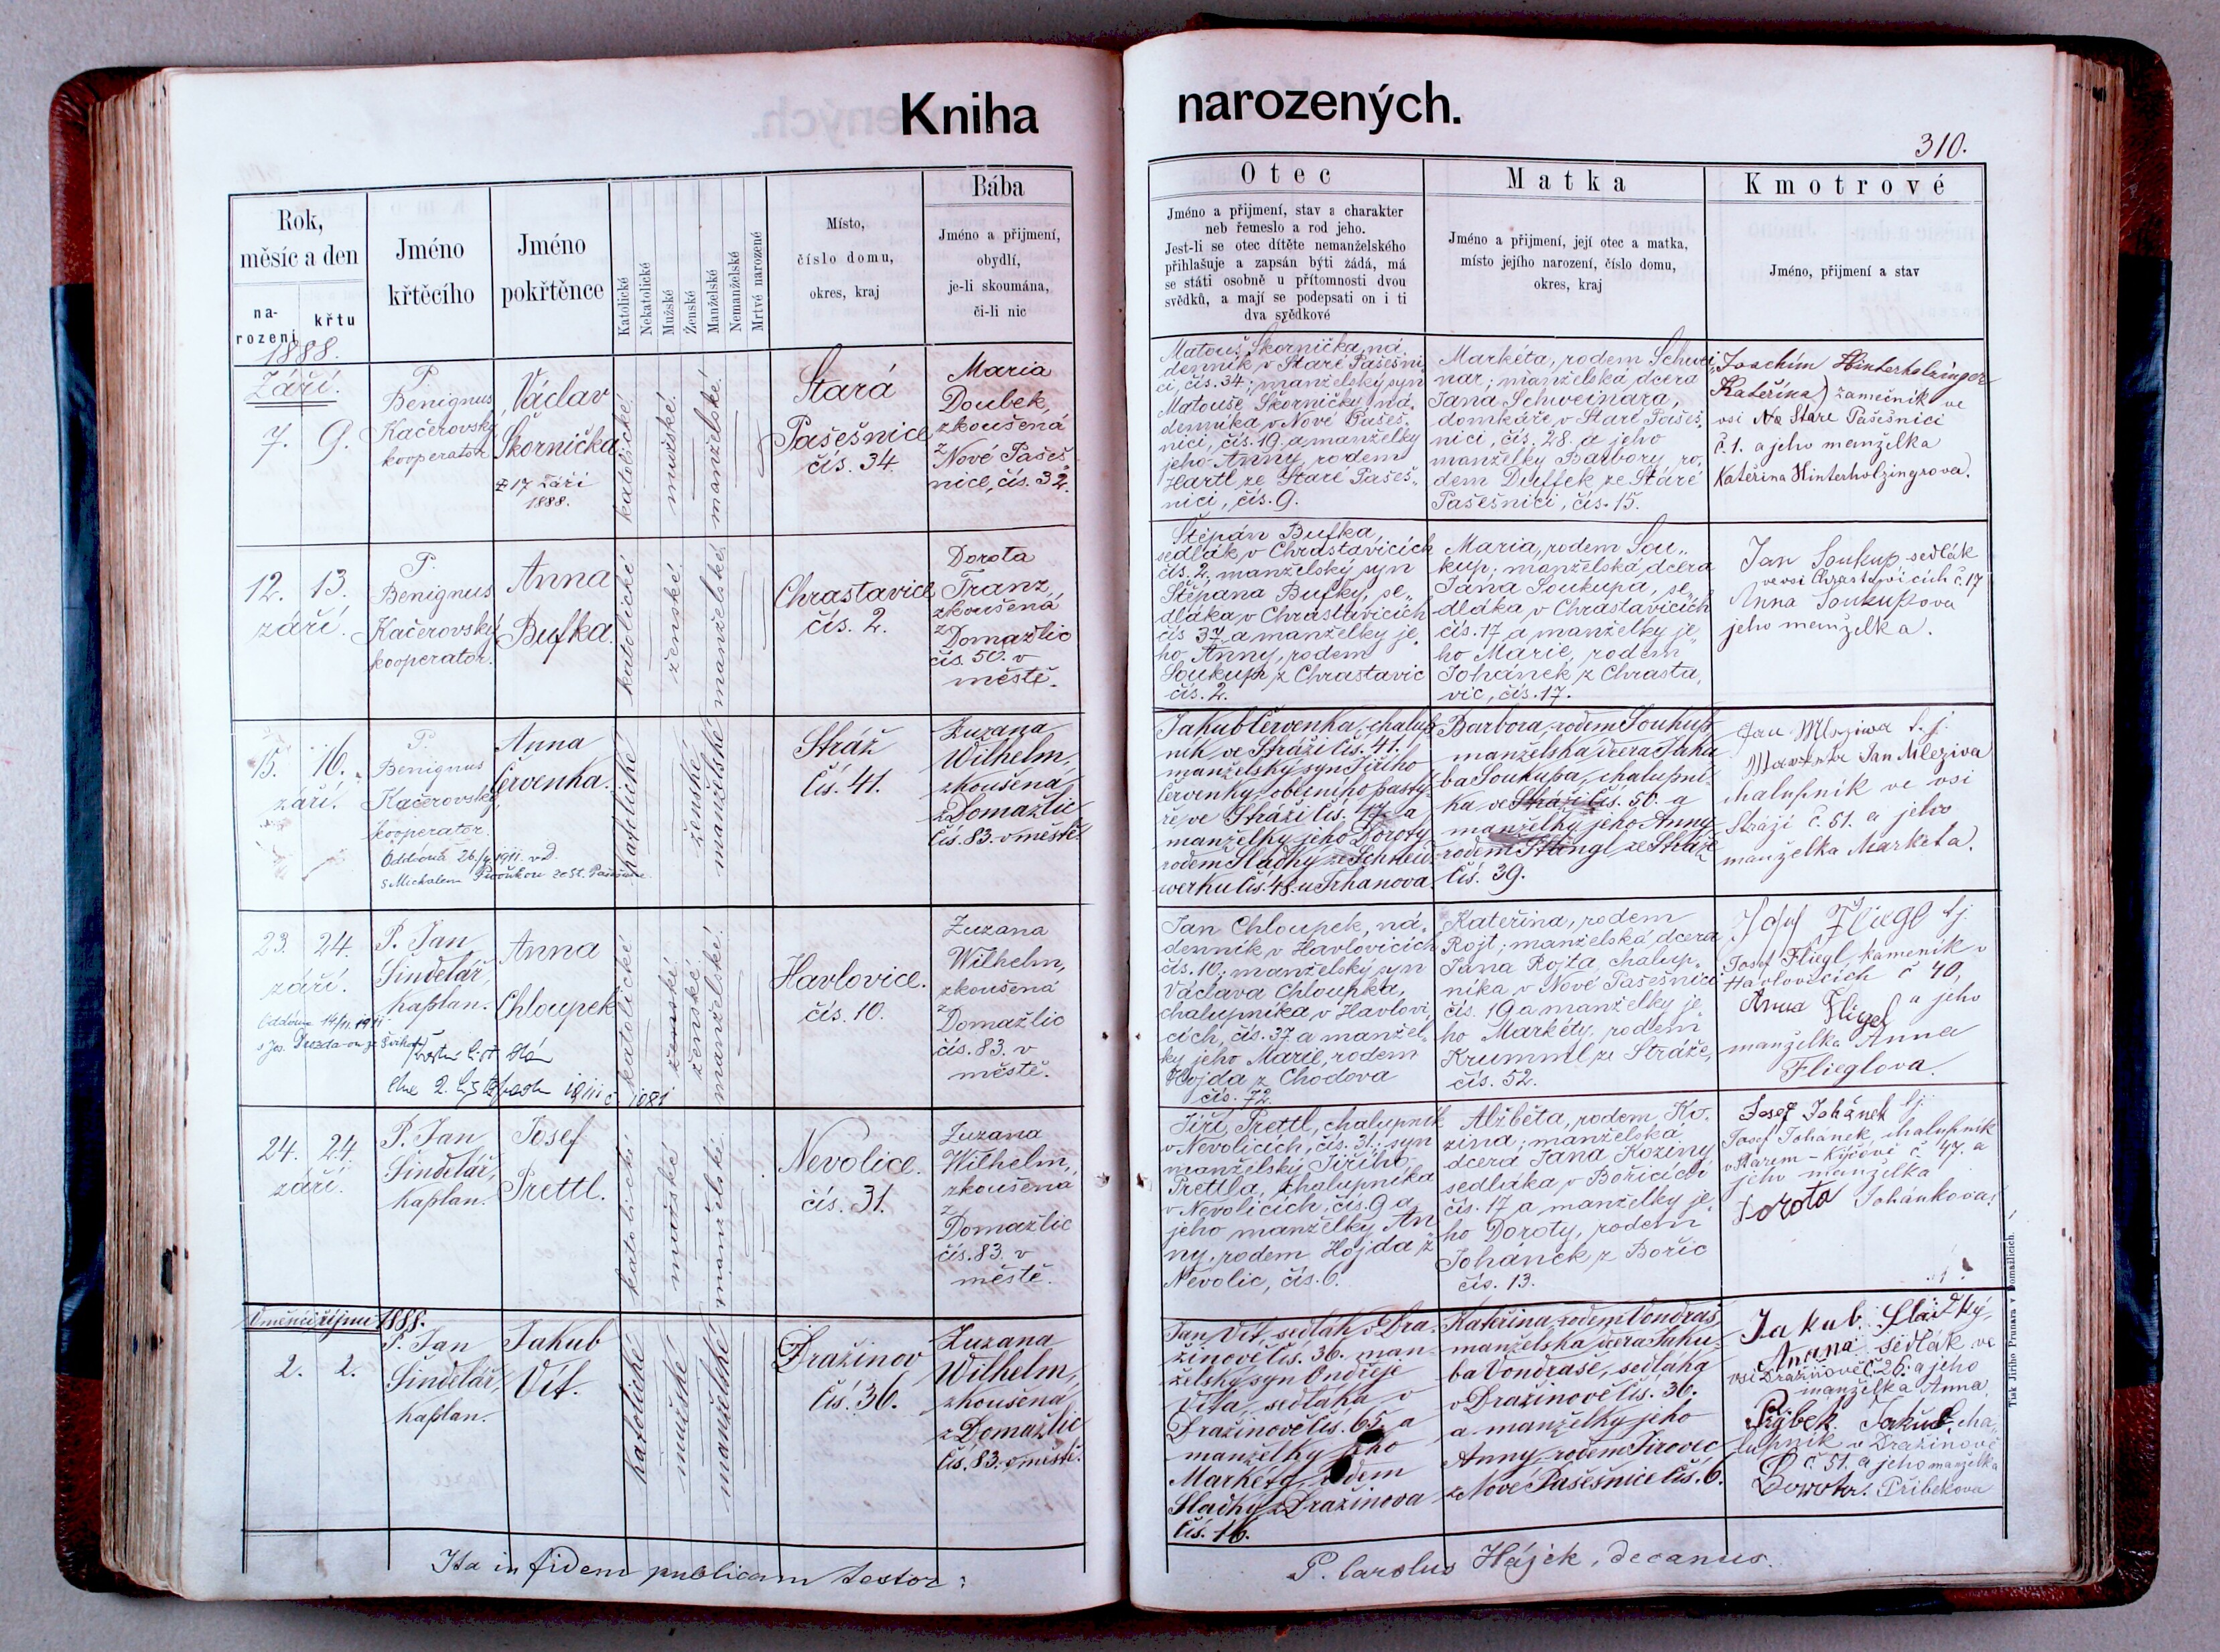 Kniha
narozených.
310.
Rok,
měsíc a den
na-
rození
křtu
Jméno
křtěcího
Jméno
pokřtěnce
Katolické
Nekatolické
Mužské
Ženské
Manželské
Nemanželské
Mrtvě narozené
Místo,
číslo domu,
okres, kraj
Bába
Jméno a přijmení,
obydlí,
je-li skoumána,
či-li nic
Otec
Jméno a přijmení, stav a charakter
neb řemeslo a rod jeho.
Jest-li se otec dítěte nemanželského
přihlašuje a zapsán býti žádá, má
se státi osobně u přítomnosti dvou
svědků, a mají se podepsati on i ti
dva svědkové
Matka
Jméno a přijmení, její otec a matka,
místo jejího narození, číslo domu,
okres, kraj
Kmotrové
Jméno, přijmení a stav
1888.
Září.
7. 9.
P.
Benignus
Kačerovský
kooperator
Václav
Škornička
17 září
1888.
katolické
mužské
manželské
Stará
Pašešnice
čís. 34
Maria
Doubek,
zkoušená
z
Nové Pašeš
nice, čís. 32.
Matouš Škornička, ná
denník v Staré Pašešni
ci, čís. 34; manželský syn
Matouše Škorničky, ná.
denníka v Nové Pašeš.
nici, čís. 19. a manželky
jeho Anny, rodem
Hartl ze Staré Pašeš„
nici, čís. 9.
Markéta, rodem Schwei„
nar; manželská dcera
Jana Schweinara,
domkáře v Staré Pašeš„
nici, čís. 28. a jeho
manželky Barbory, ro„
dem Duffek ze Staré
Pašešnici, čís. 15.
Joachim Hinterholzinger
Kateřina) zamečník ve
vsi Na Stare Pašešnici
č. 1. a jeho manželka
Kateřina Hinterholzingrova.
12. 13.
září.
P.
Benignus
Kačerovský
kooperator.
Anna
Bufka.
katolické
ženské
manželské
Chrastavice
čís. 2.
Dorota
Franz,
zkoušená
z
Domažlic
čís. 50. v
městě.
Štěpán Bufka,
sedlák v Chrastavicích
čís. 2. manželský syn
Štěpána Bufky, se„
dláka v Chrastavicích
čís 37 a manželky je„
ho Anny, rodem
Soukup z Chrastavic
čís. 2.
Maria, rodem Sou„
kup; manželská dcera
Jána Soukupa, se„
dláka v Chrastavicích
čís. 17 a manželky je„
ho Marie, rodem
Johánek z Chrasta„
vic, čís. 17.
Jan Soukup, sedlák
ve vsi Chrastavicích č. 17
Anna Soukupova
jeho manželka.
15. 16.
září.
P.
Benignus
Kačerovský,
kooperator.
Oddána 26./4. 1911. v D.
s Michalem
Anna
Červenka.
katolické
ženské
manželské
Stráž
čís. 41.
Zuzana
Wilhelm,
zkoušená
z Domažlic
čís. 83. v městě.
Jakub Červenka, chalup
ník ve Stráži čís. 41.
manželský syn Jiřího
Červenky, obecního pastý-
ře ve Stráži čís. 47. a
manželky jeho Doroty
rodem Sladký ze Schneid
werku čís. 48. u Trhanova.
Barbora, rodem Soukup
manželská dcera Jaku
ba Soukupa, chalupní-
ka ve Stráži čís. 50. a
manželky jeho Anny
rodem Stengl ze Stráže
čís. 39.
Jan Mleziwa t. j.
Jan Mleziva
chalupník ve vsi
Stráži č. 51. a jeho
manželka Marketa.
23. 24.
září.
P. Jan
Šindelář,
kaplan.
Oddána 14/11. 1911
s Jos.
dne 2. listopadu 1911 č 1081
Anna
Chloupek
katolické
ženské
ženské
manželské
Havlovice.
čís. 10.
Zuzana
Wilhelm,
zkoušená
z
Domažlic
čís. 83. v
městě.
Jan Chloupek, ná„
denník v Havlovicích
čís. 10; manželský syn
Václava Chloupka,
chalupníka v Havlovi„
cích, čís. 37 a manžel„
ky jeho Marie, rodem
Hojda z Chodova
čís. 72.
Kateřina, rodem
Rojt; manželská dcera
Jána Rojta, chalup„
níka v Nové Pašešnici
čís. 19 a manželky je„
ho Markéty, rodem
Krumml ze Stráže,
čís. 52.
Josef Fliegl tj.
Josef Fliegl, kameník v
Havlovicích č 40,
Anna Fligel a jeho
manželka Anna
Flieglova.
24. 24.
září.
P. Jan
Šindelář,
kaplan.
Josef
Prettl.
katolické
mužské
manželské
Nevolice.
čís. 31.
Zuzana
Wilhelm,
zkoušená
z
Domažlic
čís. 83. v
městě.
Jiří Prettl, chalupník
v Nevolicích, čís. 31; syn
manželský Jiřího
Prettla, chalupníka
v Nevolicích, čís. 9 a
jeho manželky An
ny, rodem Hojda z
Nevolic, čís. 6.
Alžběta, rodem Ko„
zina; manželská
dcera Jana Koziny
sedláka v Bořicích
čís. 17 a manželky je„
ho Doroty, rodem
Johánek z Bořic
čís. 13.
Josef Johánek tj.
Josef Johánek, chalupník
v Starém-Klíčově č 47. a
jeho manželka
Dorota Johánkova.
V měsíci říjnu 1888.
2. 2.
P. Jan
Šindelář,
kaplan.
Jakub
Vít.
katolické
mužské
manželské
Dražinov
čís. 36.
Zuzana
Wilhelm,
zkoušená
z Domažlic
čís. 83. v městě.
Jan Vít, sedlák v Dra-
žinově čís. 36. man-
želský syn Ondřeje
Víta, sedláka v
Dražinově čís. 65. a
manželky jeho
Markéty, rodem
Sladký z Dražinova
čís. 16.
Kateřina, rodem Vondraš,
manželská dcera Jaku-
ba Vondraše, sedláka
v Dražinově čís. 36.
a manželky jeho
Anny, rodem Pirovic
z Nové Pašešnice čís. 6.
Jakub Sladký,
Anana sedlák ve
vsi Dražinově č. 26. a jeho
manželka Anna.
Přybek Jakub, cha„
lupník v Dražinově
č. 51. a jeho manželka
Dorota Přibekova
Ita in fidem publicam testor:
P. Carolus Hájek, decanus.
Tisk Jiřího Prunara v Domažlicích.